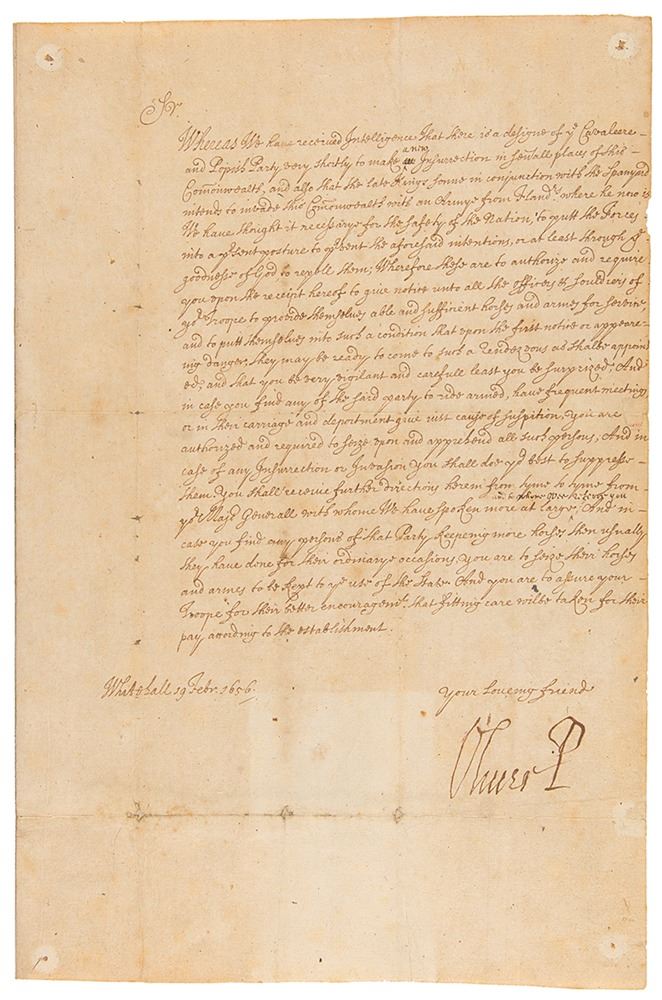 Sr.
Whereas We have received Intelligence That there is a designe of ye Cavaleere
and Popish Party very shortly to make a new Insurrection in severall places of this
Comonwealth, and also that the late Kings sonne in conjunction with the Spanyard
intends to invade this Comonwealth with an Army from Fland.rs where he now is
We have thought it necessarye for the safety of the Nation, to putt the Forces
into a p'sent posture to p'vent the aforesaid intentions, or at least through ye
goodness of God to repell them; Wherefore these are to authorize and require
you upon the receipt hereof to give notice unto all the officers & souldiers of
yor Troope to provide themselves able and sufficient horses and armes for service
and to putt themselves into such a condition that upon the first notice or appeare-
ing danger, they may be ready to come to such a Rendezvous as shalbe appoint
ed; and that you be very vigilant and carefull least you be surprized; And
in case you find any of the said party to ride armed, have frequent meetings
or in their carriage and deportment give just cause of suspition, you are
authorized and required to seize upon and apprehend all such persons; And in
case of any Insurrection or Invasion you shall doe yor best to suppresse
them. You shall receive further directions herein from tyme to tyme from
yor Major Generall with whome We have spoken more at large, And in
case you find any persons of that Party keepeing more horses then usually
they have done for their ordinarye occasions, you are to seize their horses
and armes to be kept to ye use of the State. And you are to assure your
Troope for their better encouragemt. that fitting care wilbe taken for their
pay according to the establishment.
Whitehall 19 Febr. 1656.
Your loveing friend
Oliver P